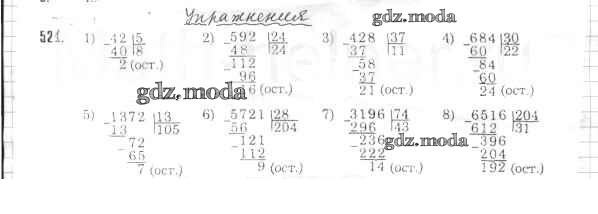 Упражнения gdz.moda
521. 1) -42 |5 2) -592 |24 3) -428 |37 4) -684 |30
40 |8 48 |24 37 |11 60 |22
2 (ост.) -112 -58 -84
96 37 60
gdz.moda 16 (ост.) 21 (ост.) 24 (ост.)
5) -1372 |13 6) -5721 |28 7) -3196 |74 8) -6516 |204
13 |105 56 |204 296 |43 612 |31
-72 -121 -236 gdz.moda -396
65 112 222 204
7 (ост.) 9 (ост.) 14 (ост.) 192 (ост.)